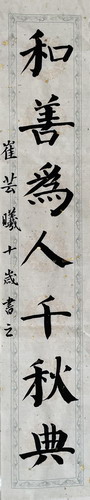 和善為人千秋典
崔芸曦十歲書之